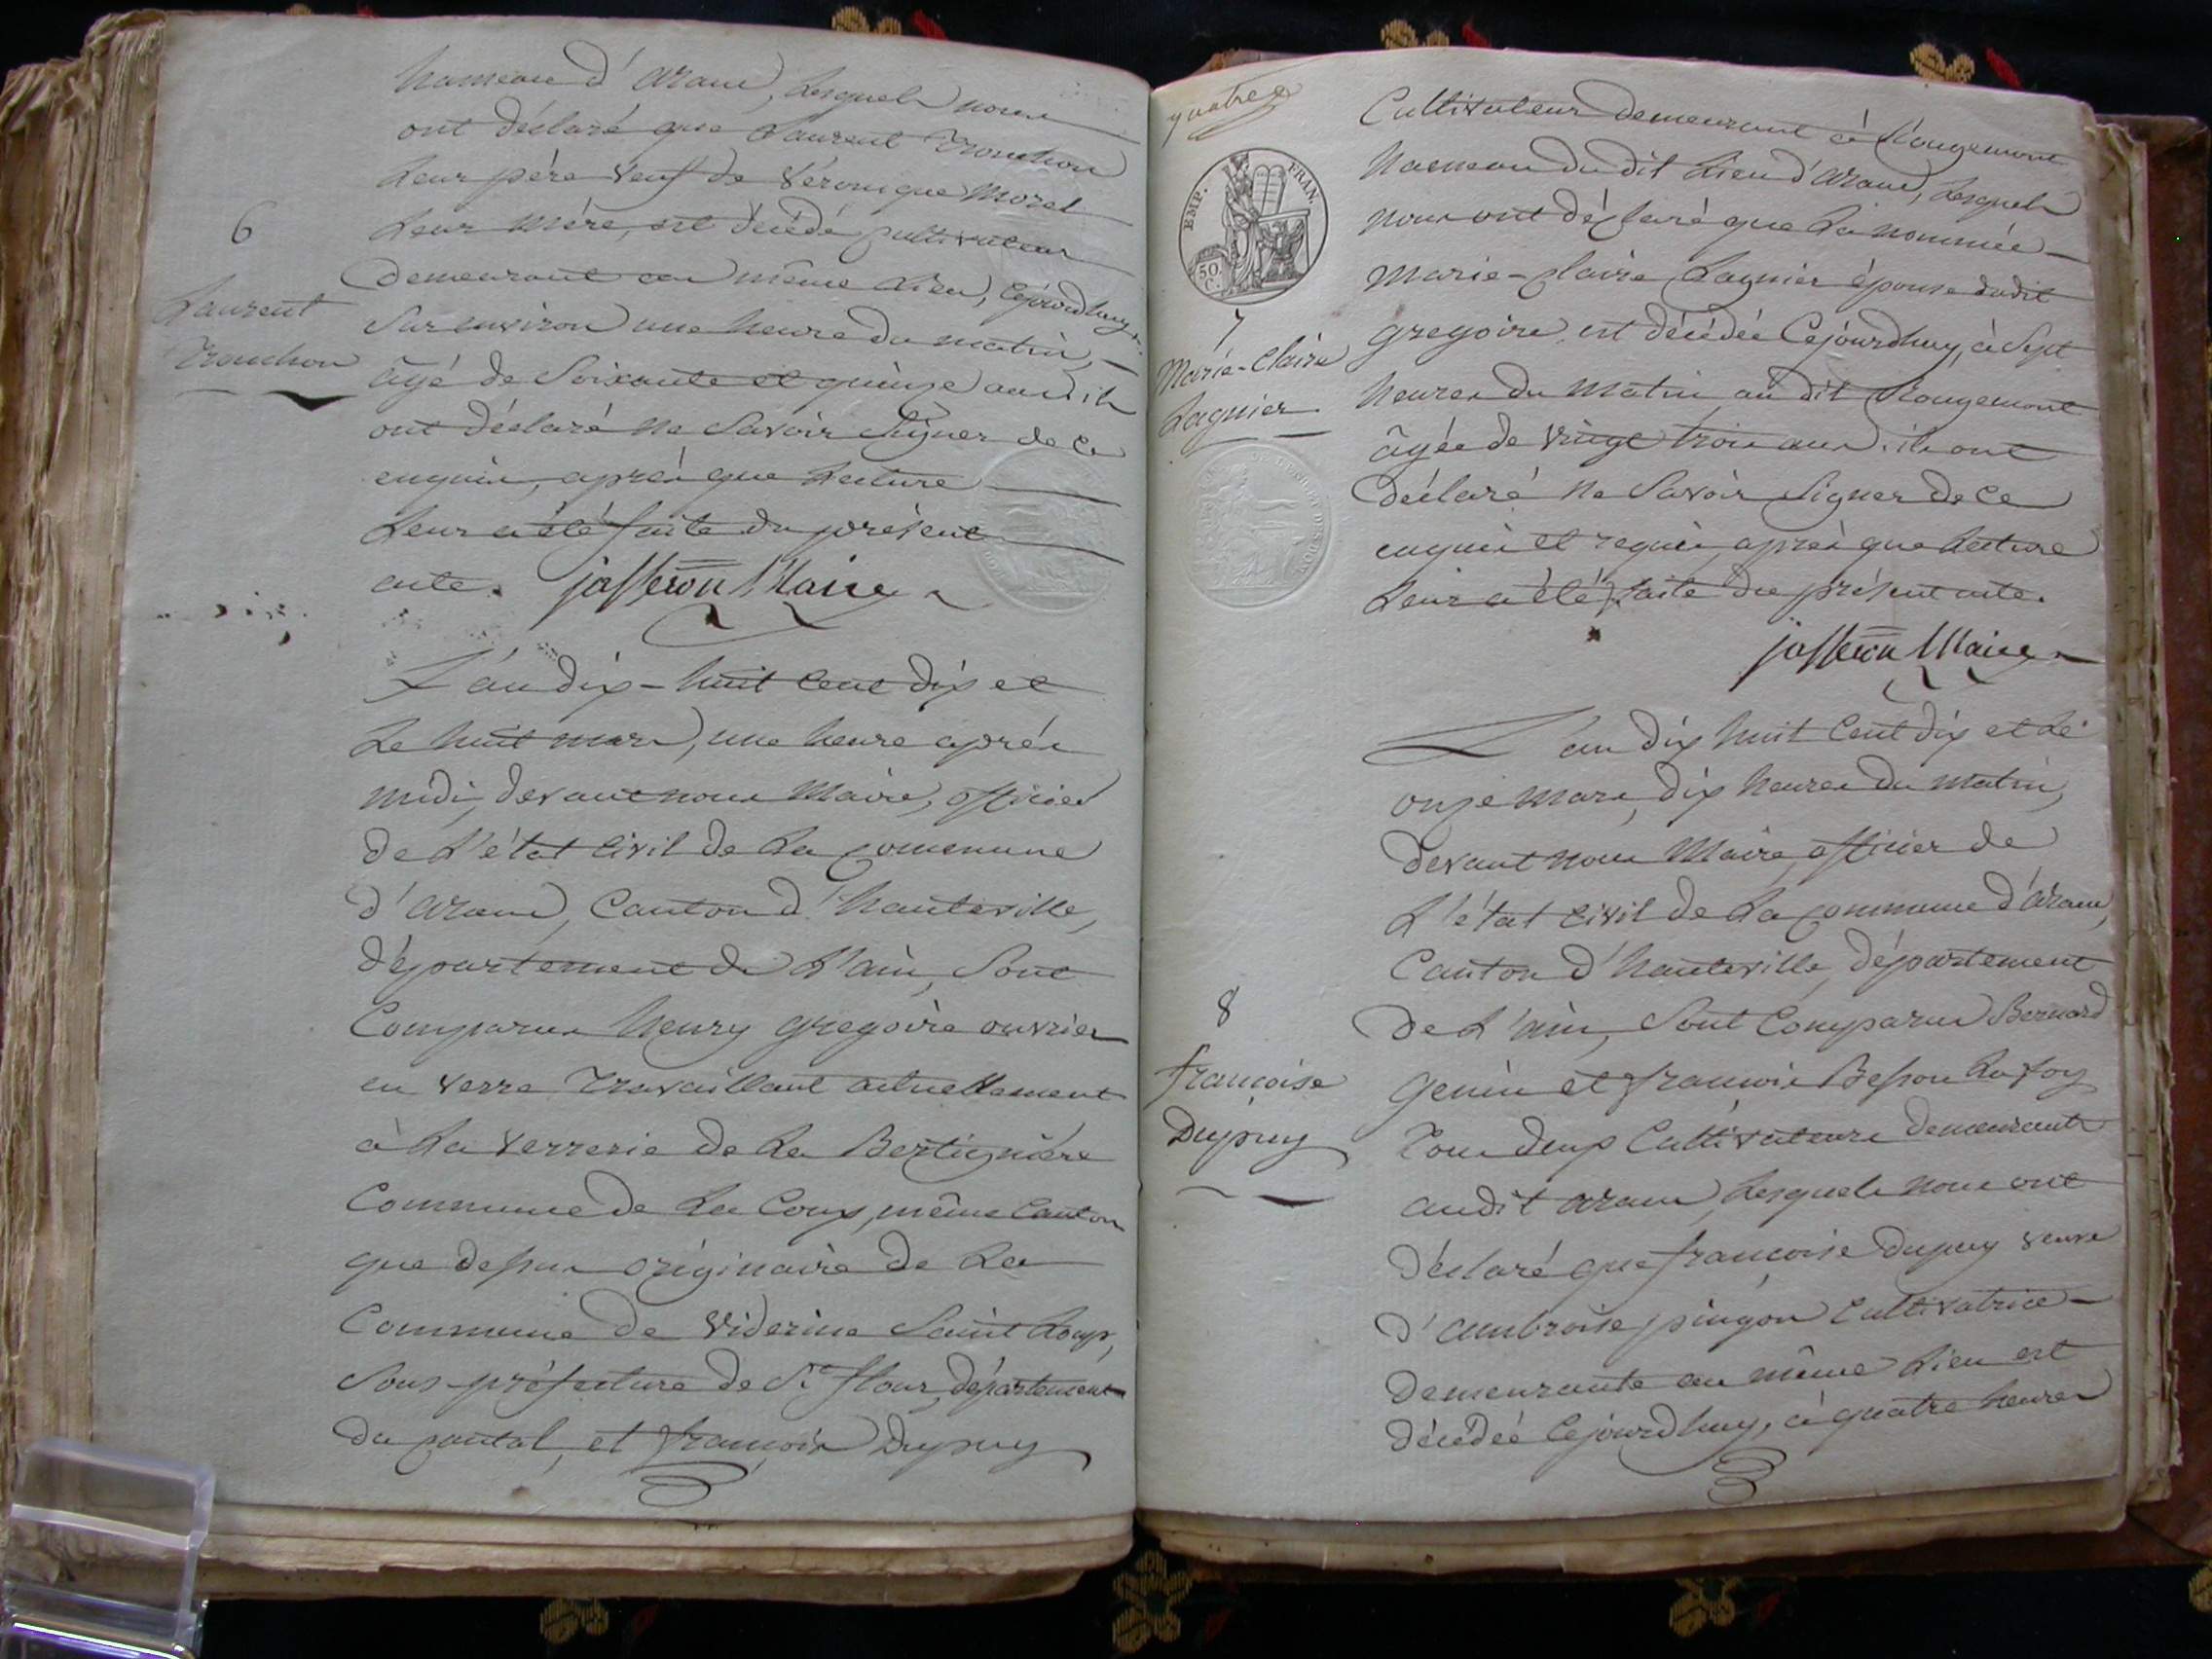 hameau d'aranc, lesquels nous
ont déclaré que Laurent Tronchon
leur père veuf de Véronique Morel
leur mère, est décédé cultivateur
demeurant au même lieu, cejourdhuy
sur environ une heure du matin,
âgé de soixante et quinze ans. ils
ont déclaré ne savoir signer de ce
enquis, après que lecture
leur a été faite du présent
acte. jasseron Maire
6
Laurent
Tronchon
L'an dix-huit cent dix et
le huit mars, une heure après
midi, devant nous Maire, officier
de l'état civil de la commune
d'aranc, Canton d'hauteville,
département de l'ain, sont
Comparus henry gregoire ouvrier
en verre travaillant actuellement
à la verrerie de la Bertignière
Commune de la Coux, même Canton
que dessus originaire de la
Commune de Viderine Saint Loup,
sous-préfecture de St. flour, département
du cantal, et françois Dupuy
quatre
EMP. FRAN.
50.
C.
Cultivateur demeurant à Rougemont
hameau du dit lieu d'aranc, lesquels
nous ont déclaré que la nommée
marie-claire Lagnier épouse dudit
gregoire, est décédée cejourdhuy, à sept
heures du matin au dit Rougemont
âgée de vingt trois ans. ils ont
déclaré ne savoir signer de ce
enquis et requis, après que lecture
leur a été faite du présent acte.
jasseron Maire
7
Marie-Claire
Lagnier
L'an dix huit cent dix et le
onze mars, dix heures du matin,
devant nous Maire, officier de
l'état civil de la commune d'aranc,
Canton d'hauteville, département
de l'ain, sont Comparus Bernard
genin et françois Besson la foy
tous deux Cultivateurs demeurants
audit aranc, lesquels nous ont
déclaré que françoise Dupuy veuve
d'ambroise pingon Cultivatrice
demeurante au même lieu est
décédée cejourdhuy, à quatre heures
8
françoise
Dupuy